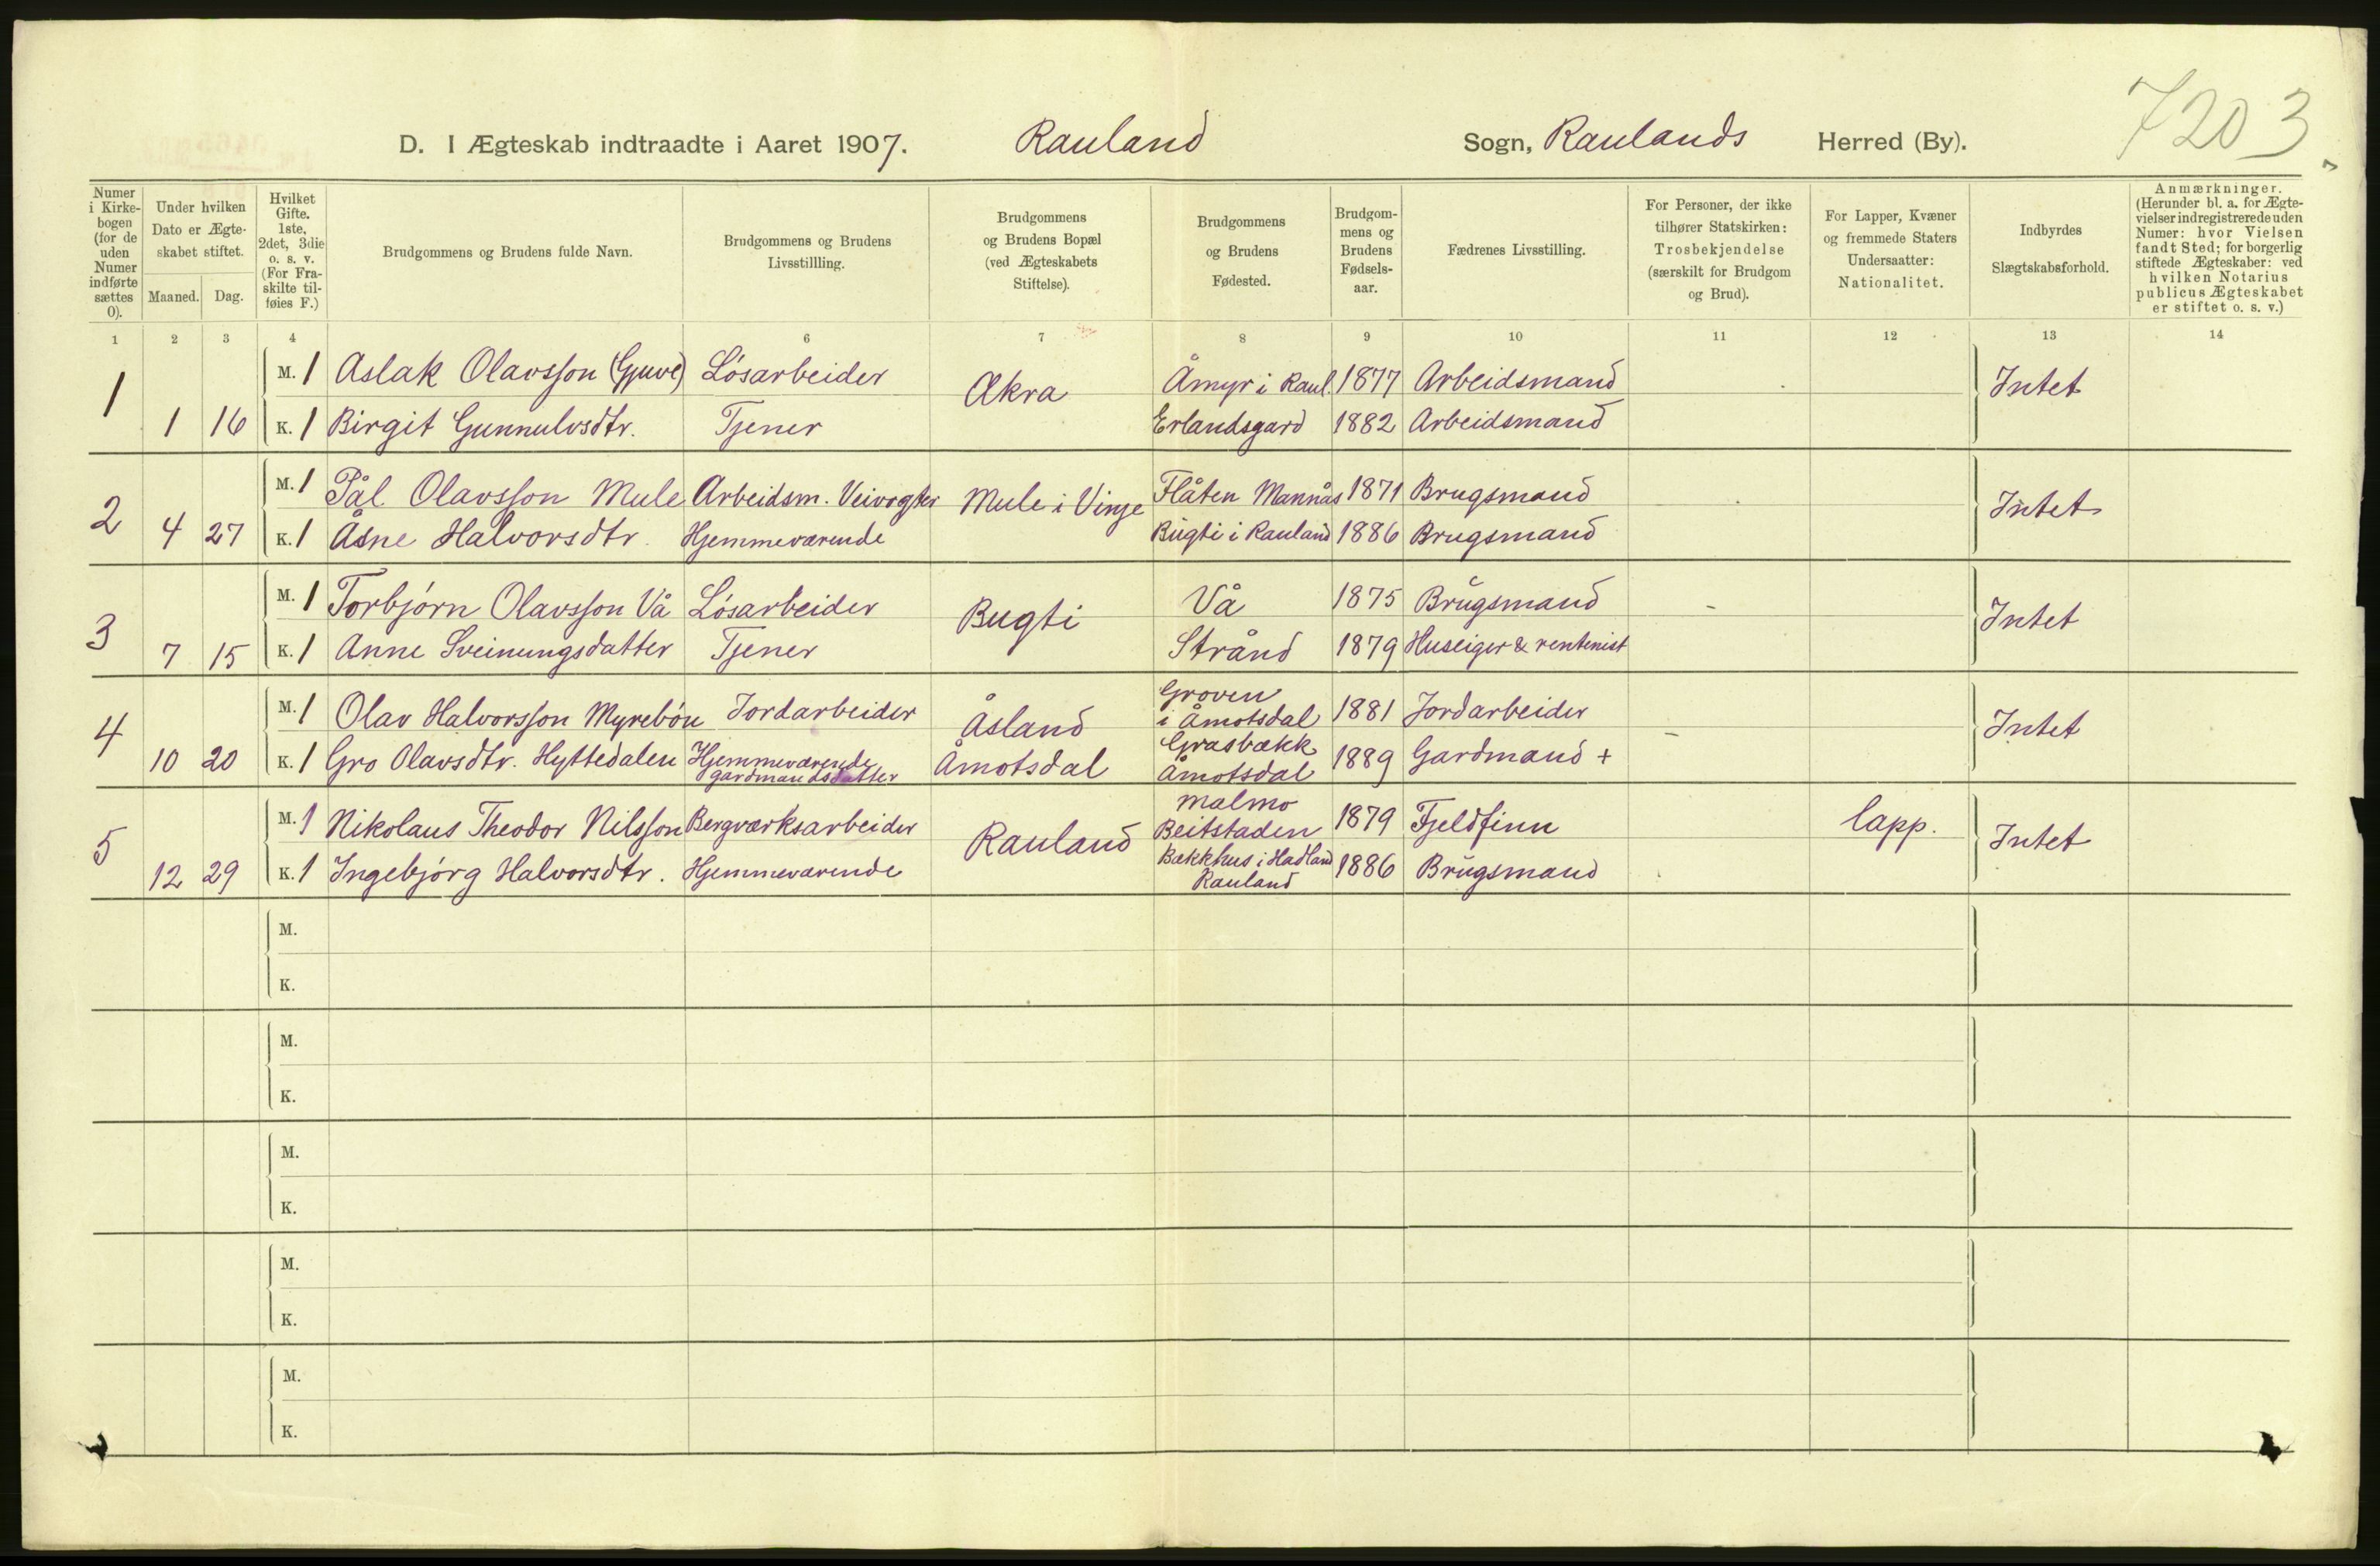 7203
D. I Ægteskab indtraadte i Aaret 1907. Rauland Sogn, Raulands Herred (By).
Numer i Kirkebogen (for de uden Numer indførte sættes 0).
Under hvilken Dato er Ægteskabet stiftet.
Maaned. Dag.
Hvilket Gifte. 1ste, 2det, 3die o. s. v. (For Fraskilte tilføies F.)
Brudgommens og Brudens fulde Navn.
Brudgommens og Brudens Livsstillling.
Brudgommens og Brudens Bopæl (ved Ægteskabets Stiftelse).
Brudgommens og Brudens Fødested.
Brudgommens og Brudens Fødselsaar.
Fædrenes Livsstilling.
For Personer, der ikke tilhører Statskirken: Trosbekjendelse (særskilt for Brudgom og Brud).
For Lapper, Kvæner og fremmede Staters Undersaatter: Nationalitet.
Indbyrdes Slægtskabsforhold.
Anmærkninger. (Herunder bl. a. for Ægtevielser indregistrerede uden Numer: hvor Vielsen fandt Sted; for borgerlig stiftede Ægteskaber: ved hvilken Notarius publicus Ægteskabet er stiftet o. s. v.)
1 2 3 4 6 7 8 9 10 11 12 13 14
1 M. 1 Aslak Olavsson (Gjuve) Løsarbeider Åkra Åmyr i Raul. 1877 Arbeidsmand Intet
1 16 K. 1 Birgit Gunnulvsdtr. Tjener Erlandsgard 1882 Arbeidsmand
2 M. 1 Pål Olavsson Mule Arbeidsm. Veivogter Mule i Vinje Flåten Mannås 1871 Brugsmand Intet
4 27 K. 1 Åsne Halvorsdtr. Hjemmeværende Bugti i Rauland 1886 Brugsmand
3 M. 1 Torbjørn Olavsson Vå Løsarbeider Bugti Vå 1875 Brugsmand - Intet
7 15 K. 1 Anne Sveinungsdatter Tjener Strånd 1879 Huseiger & rentenist
4 M. 1 Olav Halvorsson Myrebøn Jordarbeider Åsland Groven i Åmotsdal 1881 Jordarbeider - Intet
10 20 K. 1 Gro Olavsdtr. Hyttedalen Hjemmeværende gardmandsdatter Åmotsdal Grasbækk Åmotsdal 1889 Gardmand +
5 M. 1 Nikolaus Theodor Nilsson Bergværksarbeider Rauland Malmo Beitstaden 1879 Fjeldfinn lapp. Intet
12 29 K. 1 Ingebjørg Halvorsdtr. Hjemmeværende Bækkhus i Hadland Rauland 1886 Brugsmand
M.
K.
M.
K.
M.
K.
M.
K.
M.
K.